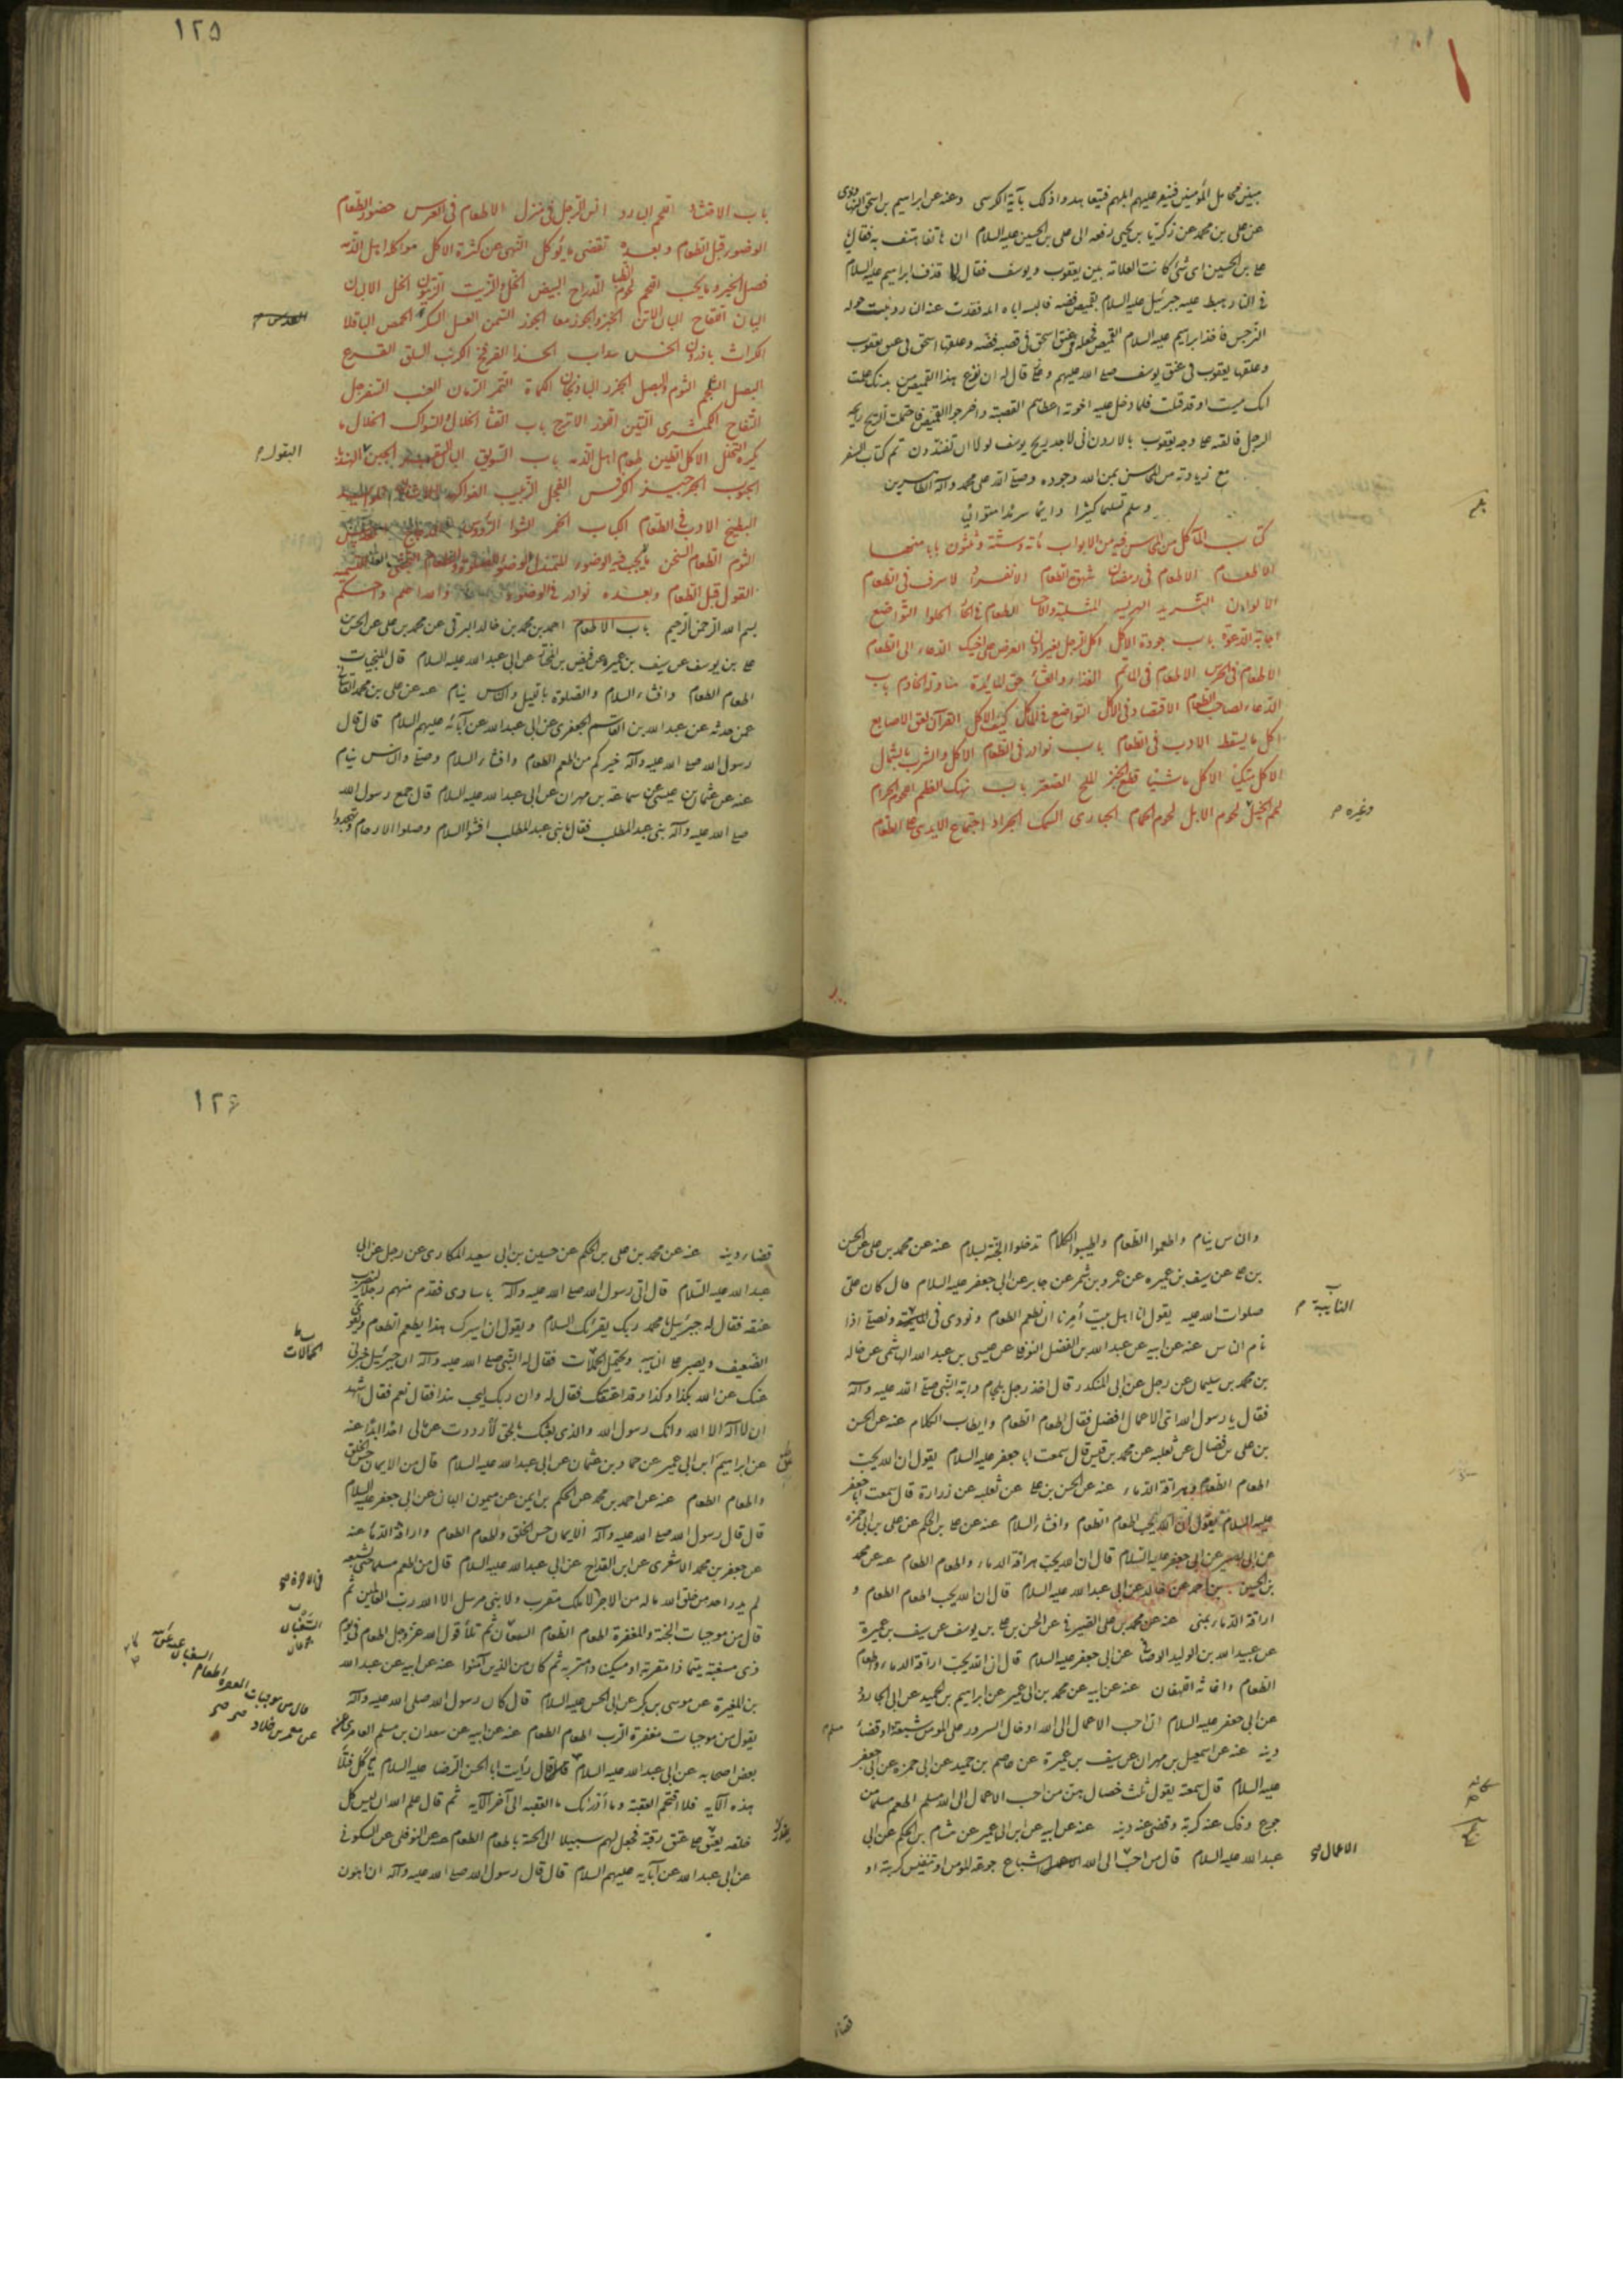 ١٢٥
عن علي بن محمد عن زكريا بن يحيى رفعه الى علي بن الحسين عليه السلام ان هاتفا هتف به فقال يا
علي بن الحسين اى شئ كانت العلامة بين يعقوب ويوسف فقال لما قذف ابراهيم عليه السلام
في النار هبط عليه جبرئيل عليه السلام بقميص فضة فالبسه اياه ففرت عنه النار ونبت حوله
النرجس فاخذ ابراهيم عليه السلام القميص فجعله في عنق اسحق في قصبة فضة وعلقها اسحق في عنق يعقوب
وعلقها يعقوب في عنق يوسف صلى الله عليهم وقال له ان نزع هذا القميص من بدنك علمت
انك ميت او قد قتلت فلما دخل عليه اخوته اعطاهم القصبة واخرجوا القميص فاحتملت الريح رايحته
فالقته على وجه يعقوب بالاردن انى لاجد ريح يوسف لولا ان تفندون تم كتاب السفر
مع زيادته من المحاسن بمن الله وجوده وصلى الله على محمد وآله الطاهرين
وسلم تسليما كثيرا دايما سرمدا متواليا
كتاب المآكل من المحاسن فيه من الابواب مائة وستة وثلثون بابا منها
الاطعام الاطعام في رمضان شهوة الطعام الانفراد لا سرف في الطعام
الالوان الثريد الهريسة المثلثة والاحسا الطعام في الحار الحلوا التواضع
اجابة الدعوة باب جودة الاكل اكل الرجل بغير اذن العرض على اخيك الدعاء الى الطعام
الاطعام في الخرس الاطعام في المآتم الغذاء والعشا حق المايدة مناولة الخادم باب
الدعاء لصاحب الطعام الاقتصاد في الاكل التواضع في الاكل كيف الاكل القرآن لعق الاصابع
اكل ما يسقط الادب في الطعام باب نوادر في الطعام الاكل والشرب بالشمال
الاكل متكيا الاكل ماشيا قطع الخبز الملح الصعتر باب نهك العظم لحوم الحرام
لحم الخيل لحوم الابل لحوم الحمام الحبارى السمك الجراد اجتماع الايدى على الطعام
وغيره م
باب الاقتصاد انس الرجل في منزل الاطعام في العرس حضور الطعام
الوضوء قبل الطعام وبعده تقصى ما يؤكل النهى عن كثرة الاكل مواكلة اهل الذمة
فضل الخبز وما يجب اللحم لحوم الظبا الدراج البيض الخل والزيت الزيتون الخل الالبان
البان اللقاح البان الاتن الجبن والجوز معا الجوز السمن العسل السكر الحمص الباقلا
الكراث باذروج الخس سداب الحندا الفرفخ الكرنب السلق القرع
البصل الشلجم الثوم والبصل الجزر الباذنجان الكماة التمر الرمان العنب السفرجل
التفاح الكمثرى التين الموز الاترج باب القثا الخلال والسواك الخلال ما
يكره التخلل الاكل الطين طعام اهل الذمة باب السويق
البقول م
الحبوب الجرجير الكرفس الفجل الزبيب الفواكه
البطيخ الادب في الطعام الكباب الخمر الشوا الرؤوس
الثوم الطعام السخن ما يجب فيه الوضوء
القول قبل الطعام وبعده نوادر في الوضوء والله اعلم واحكم
بسم الله الرحمن الرحيم باب الاطعام احمد بن محمد بن خالد البرقى عن محمد بن على عن الحسن
على بن يوسف عن سيف بن عميرة عن فيض بن المختار عن ابى عبد الله عليه السلام قال المنجيات
اطعام الطعام وافشاء السلام والصلوة بالليل والناس نيام عنه عن على بن محمد القاسانى
عمن حدثه عن عبد الله بن القاسم الجعفرى عن ابى عبد الله عن آبائه عليهم السلام قال قال
رسول الله صلى الله عليه وآله خيركم من اطعم الطعام وافشاء السلام وصلى والناس نيام
عنه عن عثمان بن عيسى عن سماعة بن مهران عن ابى عبد الله عليه السلام قال جمع رسول الله
صلى الله عليه وآله بنى عبد المطلب فقال يا بنى عبد المطلب افشوا السلام وصلوا الارحام وتهجدوا
١٢٦
والناس نيام واطعموا الطعام واطيبوا الكلام تدخلوا الجنة بسلام عنه عن محمد بن على عن الحسن
بن على عن سيف بن عميره عن عمرو بن شمر عن جابر عن ابى جعفر عليه السلام قال كان على
صلوات الله عليه يقول انا اهل بيت أمرنا ان نطعم الطعام ونودى في النائبة ونصلى اذا
النايبة م
نام الناس عنه عن ابيه عن عبد الله بن الفضل النوفلى عن عيسى بن عبد الله الهاشمى عن خاله
بن محمد بن سليمان عن رجل عن ابى المنكدر قال اخذ رجل بلجام دابة النبى صلى الله عليه وآله
فقال يا رسول الله اى الاعمال افضل فقال اطعام الطعام واطياب الكلام عنه عن الحسن
بن على بن فضال عن ثعلبه عن محمد بن قيس قال سمعت ابا جعفر عليه السلام يقول ان الله يحب
اطعام الطعام وهراقة الدماء عنه عن الحسن بن على عن ثعلبه عن زرارة قال سمعت ابا جعفر
عليه السلام يقول ان الله يحب اطعام الطعام وافشاء السلام عنه عن على بن الحكم عن على بن ابى حمزه
عن ابى بصير عن ابى جعفر عليه السلام قال ان الله يحب هراقة الدماء واطعام الطعام عنه عن محمد
بن الحسين بن احمد عن خالد عن ابى عبد الله عليه السلام قال ان الله يحب اطعام الطعام و
اراقة الدماء بمنى عنه عن محمد بن على الصيرفى عن الحسن بن على بن يوسف عن سيف بن عميرة
عن عبيد الله بن الوليد الوصافى عن ابى جعفر عليه السلام قال ان الله يحب اراقة الدماء واطعام
الطعام واغاثة اللهفان عنه عن ابيه عن محمد بن ابى عمير عن ابراهيم بن عبد الحميد عن ابى الجارود
عن ابى جعفر عليه السلام ان احب الاعمال الى الله ادخال السرور على المومن شبعة او قضاء
دينه عنه عن اسمعيل بن مهران عن سيف بن عميرة عن عاصم بن حميد عن ابى حمزه عن ابى جعفر
عليه السلام قال سمعته يقول ثلث خصال هن من احب الاعمال الى الله مسلم اطعم مسلما من
جوع وفك عنه كربة وقضى عنه دينه عنه عن ابيه عن ابن ابى عمير عن هشام بن الحكم عن ابى
عبد الله عليه السلام قال من احب الى الله اشباع جوعة المومن او تنفيس كربته او
الاعمال
قضاء
قضاء دينه عنه عن محمد بن على بن الحكم عن حسين بن ابى سعيد المكارى عن رجل عن ابى
عبد الله عليه السلام قال اتى رسول الله صلى الله عليه وآله باسارى فقدم منهم رجلا ليضرب
عنقه فقال له جبرئيل يا محمد ربك يقرئك السلام ويقول ان اسيرك هذا يطعم الطعام ويقرى
الضيف ويصبر على النايبه ويحتمل الحمالات فقال له النبى صلى الله عليه وآله ان جبرئيل خبرنى
الحمالات
عنك عن الله بكذا وكذا وقد اعتقتك فقال له وان ربك ليحب هذا فقال نعم فقال اشهد
ان لا اله الا الله وانك رسول الله والذى بعثك بالحق لا رددت عن مالى احدا ابدا عنه
عن ابراهيم ابن ابى عمير عن حماد بن عثمان عن ابى عبد الله عليه السلام قال من الايمان حسن الخلق
واطعام الطعام عنه عن احمد بن محمد عن الحكم بن ايمن عن ميمون البان عن ابى جعفر عليه السلام
قال قال رسول الله صلى الله عليه وآله الايمان حسن الخلق واطعام الطعام واراقة الدماء عنه
عن جعفر بن محمد الاشعرى عن ابن القداح عن ابى عبد الله عليه السلام قال من اطعم مسلما حتى يشبعه
لم يدر احد من خلق الله ما له من الاجر لا ملك مقرب ولا نبى مرسل الا الله رب العالمين ثم
قال من موجبات الجنة والمغفرة اطعام الطعام السغبان ثم تلا قول الله عز وجل اطعام في يوم
السغبان
ذى مسغبة يتيما ذا مقربة او مسكينا ذا متربة ثم كان من الذين آمنوا عنه عن ابيه عن عبد الله
بن المغيرة عن موسى بن بكر عن ابى الحسن عليه السلام قال كان رسول الله صلى الله عليه وآله
يقول من موجبات مغفرة الرب اطعام الطعام عنه عن ابيه عن سعدان بن مسلم العامرى عن
بعض اصحابه عن ابى عبد الله عليه السلام قال رأيت ابا الحسن الرضا عليه السلام يأكل فتلا
هذه الآيه فلا اقتحم العقبة وما أدراك ما العقبه الى آخر الآيه ثم قال علم الله ان ليس كل
خلقه يقدر على عتق رقبة فجعل لهم سبيلا الى الجنة باطعام الطعام عنه عن النوفلى عن السكونى
عن ابى عبد الله عن آبايه عليهم السلام قال قال رسول الله صلى الله عليه وآله ان اهون